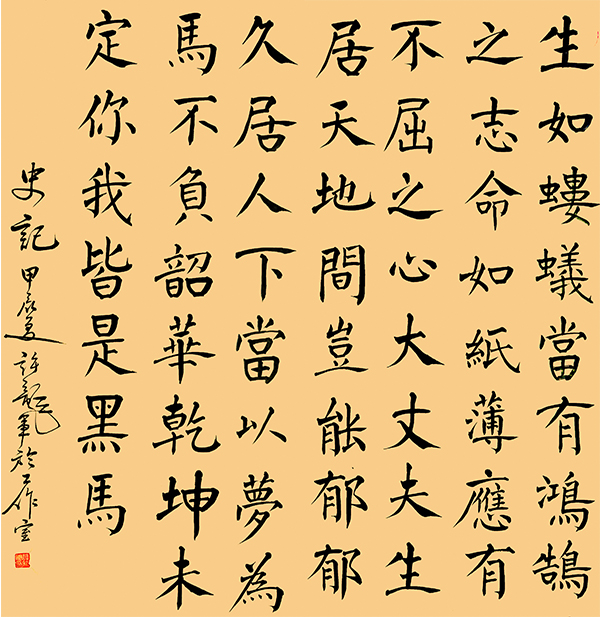 生如螻蟻當有鴻鵠
之志命如紙薄應有
不屈之心大丈夫生
居天地間豈能郁郁
久居人下當以夢為
馬不負韶華乾坤未
定你我皆是黑馬
史記甲辰夏許龍軍於工作室